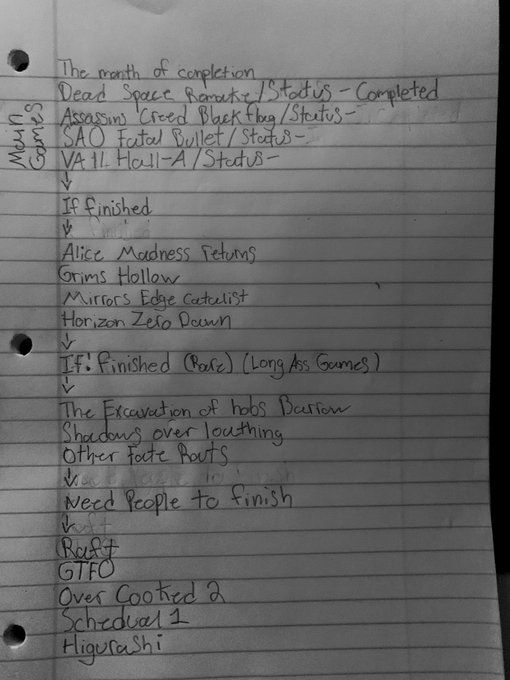 The month of completion
Dead Space Remake/Status - Completed
Assassins Creed Blackflag/Status-
SAO Fatal Bullet/Status-
VA 11 Hall-A/Status-
Main Games
↓
If finished
↓
Alice Madness returns
Grims Hollow
Mirrors Edge Catalist
Horizon Zero Dawn
↓
If! finished (Rare) (Long Ass Games)
↓
The Excavation of hobs Barrow
Shadows over louthing
Other Fate Routs
↓
Need People to finish
↓
Raft
GTFO
Over Cooked 2
Schedual 1
Higurashi